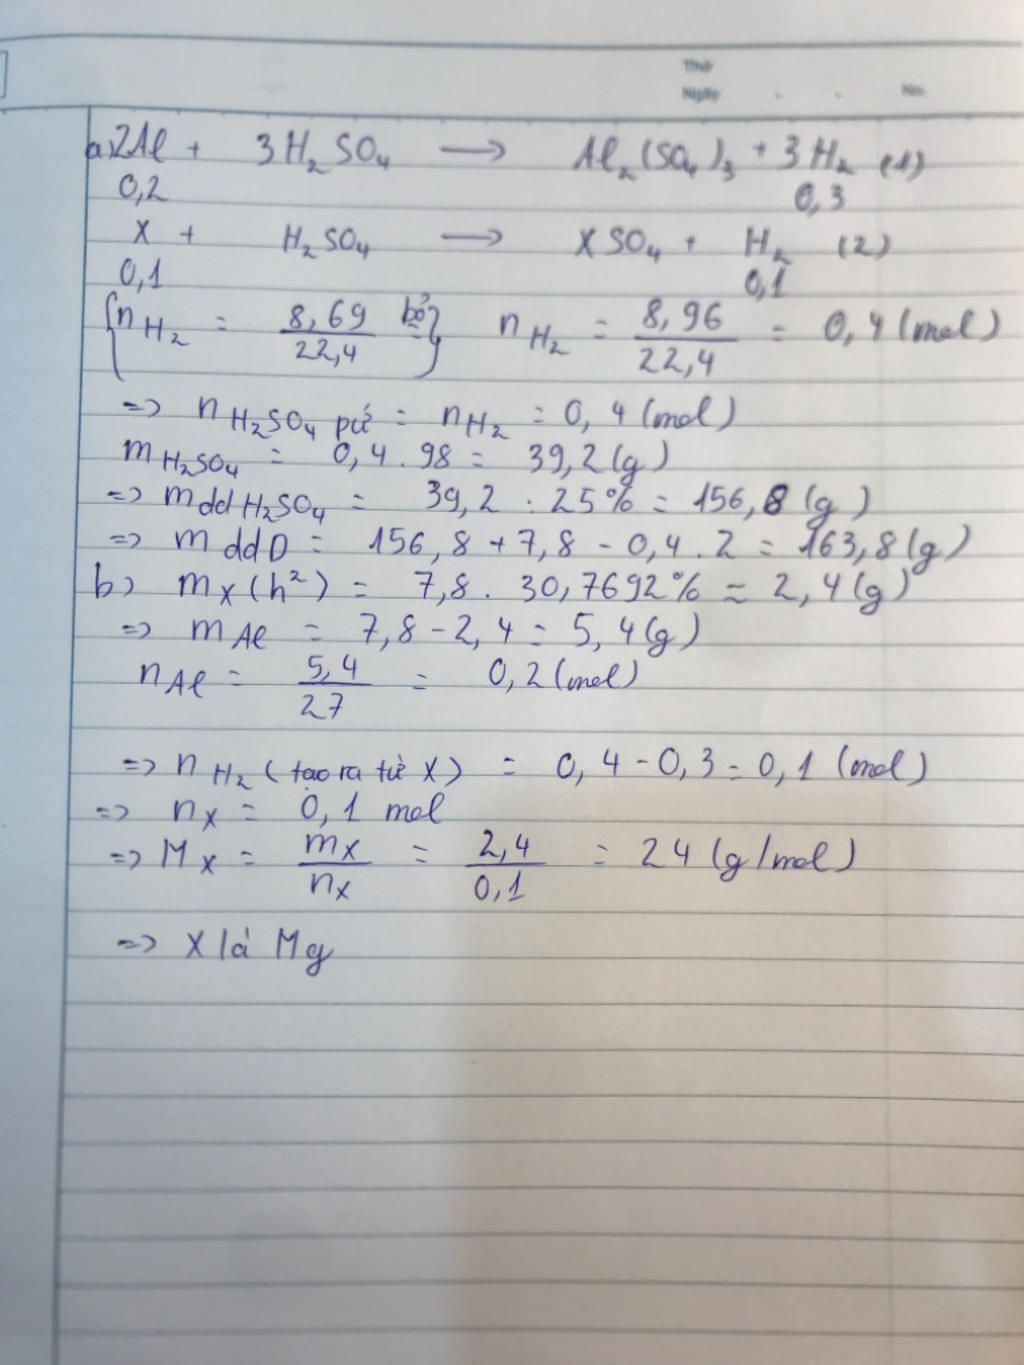 Thứ
Ngày . . No.
a) 2Al + 3H₂SO₄ → Al₂(SO₄)₃ + 3H₂ (1)
0,2 0,3
X + H₂SO₄ → XSO₄ + H₂ (2)
0,1 0,1
{n H₂ = 8,69/22,4 bỏ} n H₂ = 8,96/22,4 = 0,4 (mol)
=> n H₂SO₄ pứ = n H₂ = 0,4 (mol)
m H₂SO₄ = 0,4 . 98 = 39,2 (g)
=> m dd H₂SO₄ = 39,2 : 25% = 156,8 (g)
=> m ddD = 156,8 + 7,8 - 0,4 . 2 = 163,8 (g)
b) m X (h²) = 7,8 . 30,7692% = 2,4 (g)
=> m Al = 7,8 - 2,4 = 5,4 (g)
n Al = 5,4/27 = 0,2 (mol)
=> n H₂ (tạo ra từ X) = 0,4 - 0,3 = 0,1 (mol)
=> n X = 0,1 mol
=> M X = m X/n X = 2,4/0,1 = 24 (g/mol)
=> X là Mg